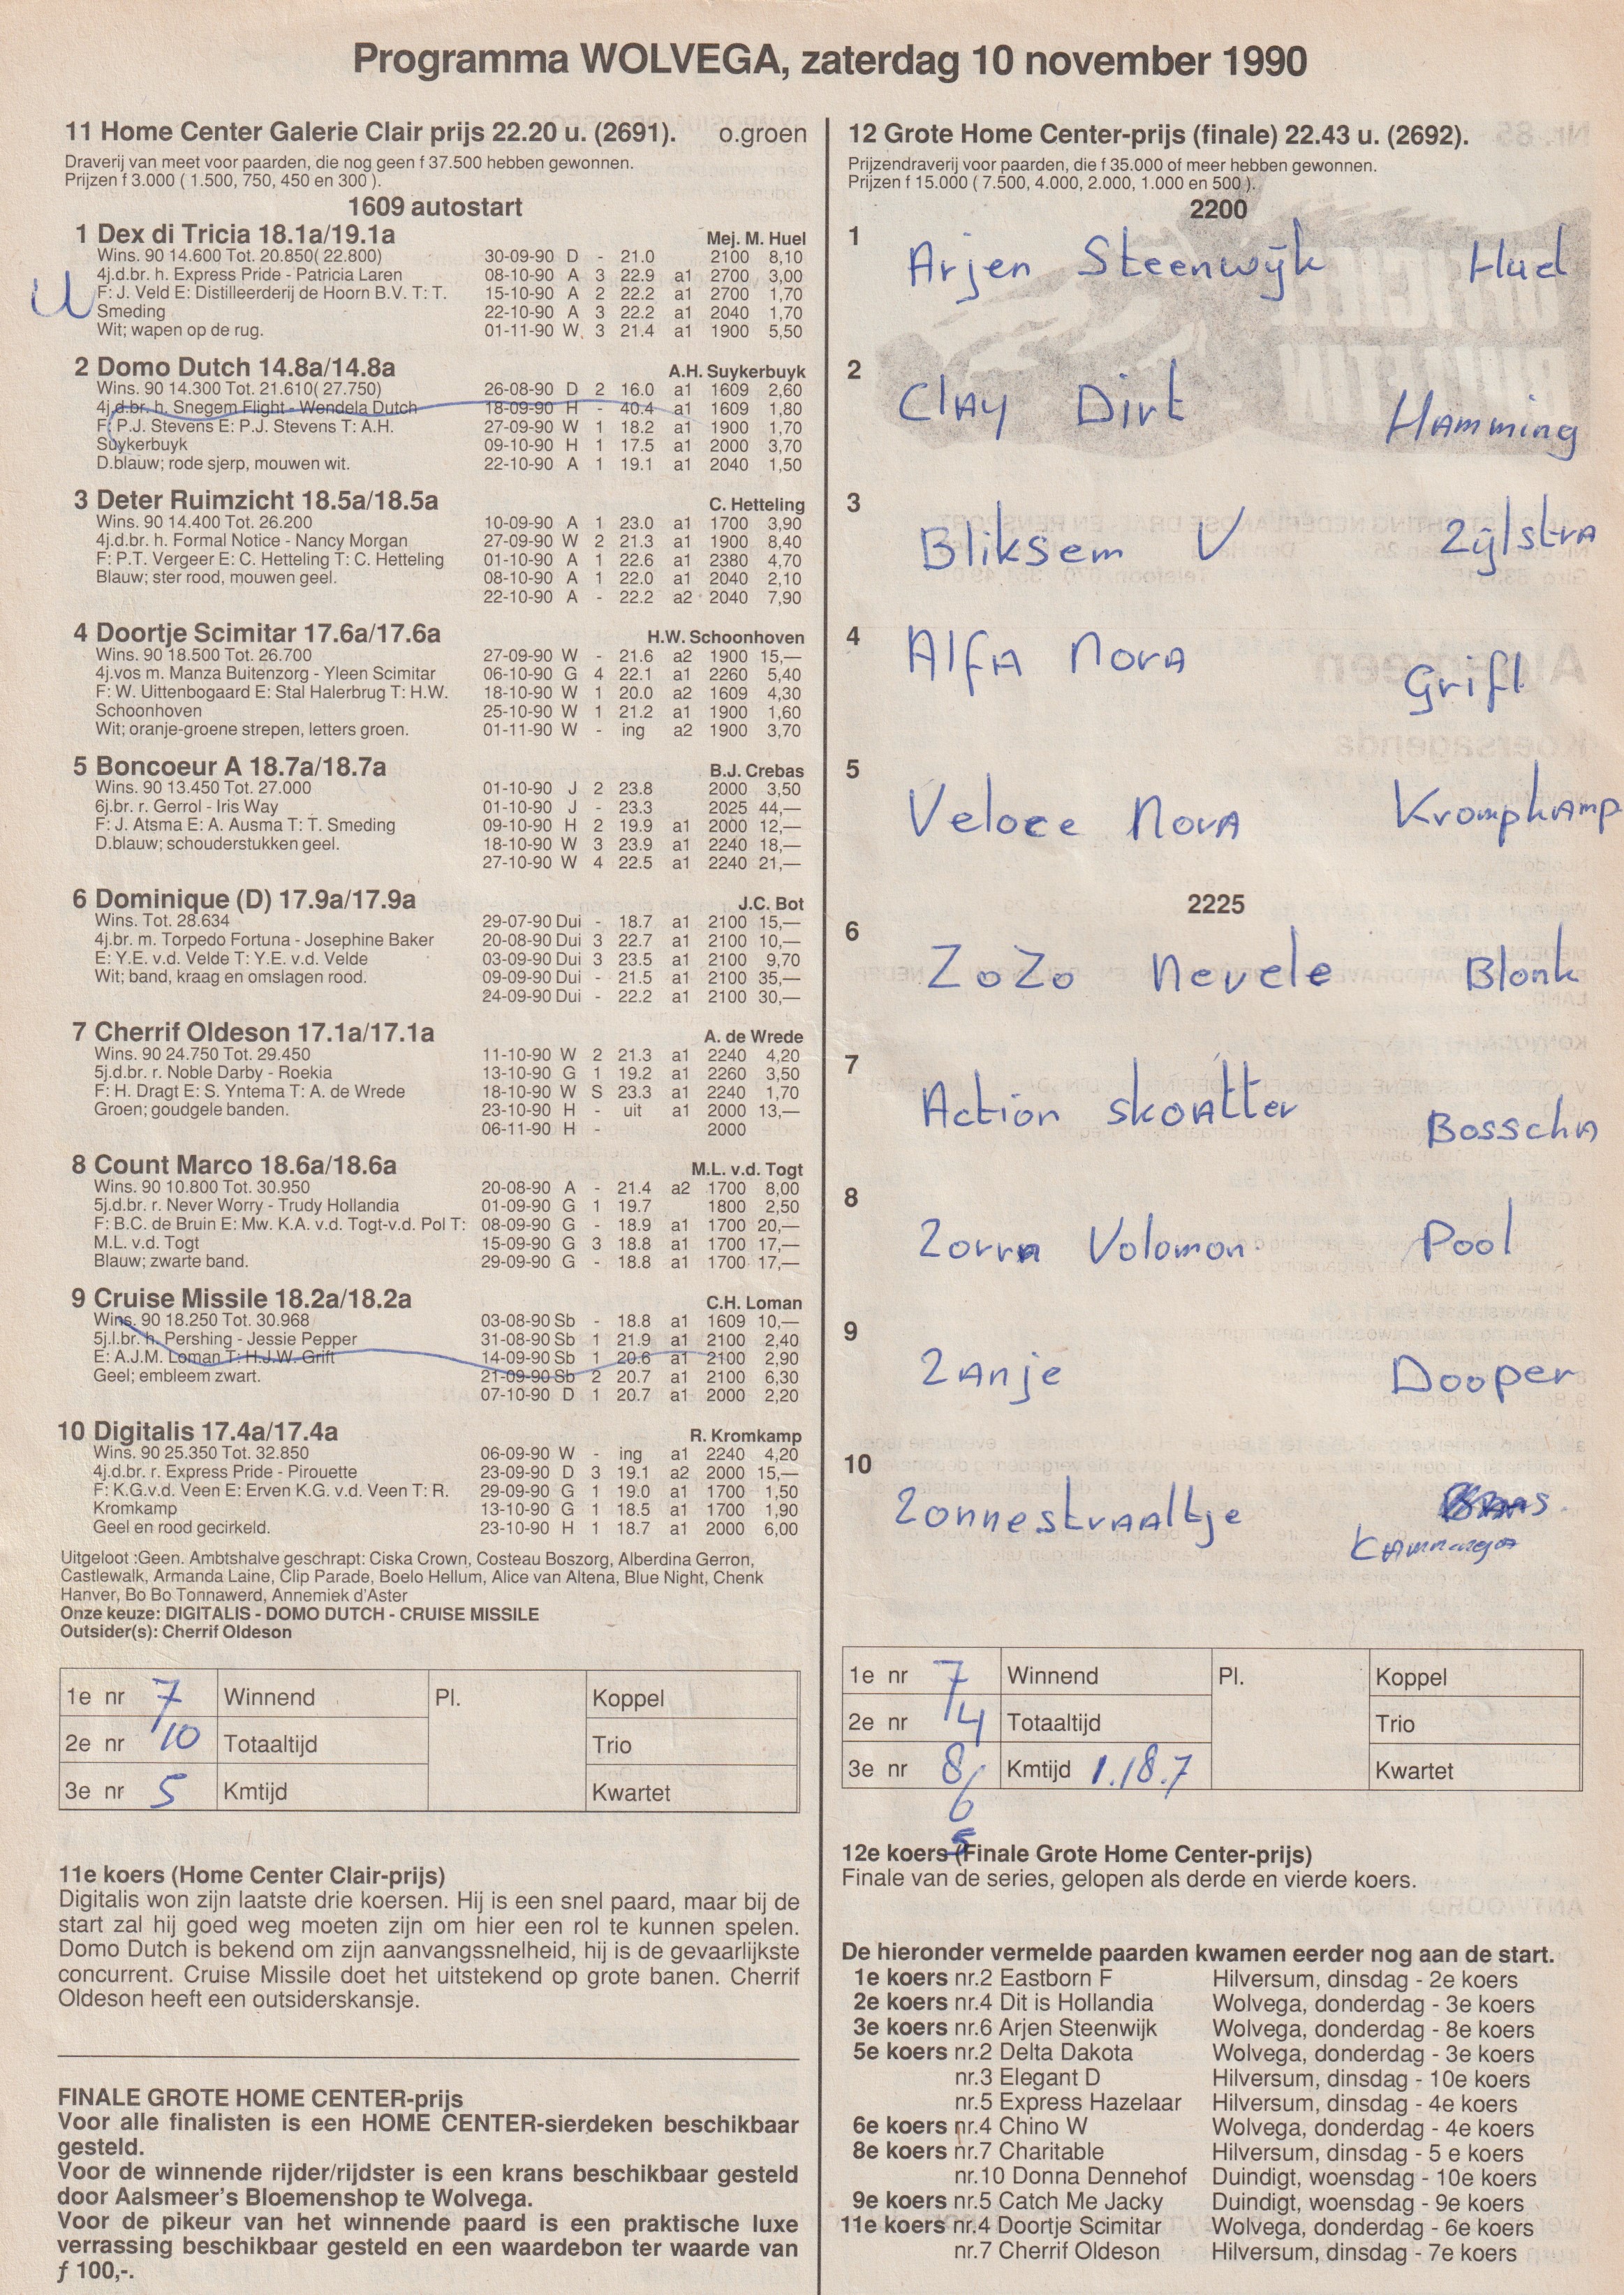 Programma WOLVEGA, zaterdag 10 november 1990
11 Home Center Galerie Clair prijs 22.20 u. (2691). o.groen
Draverij van meet voor paarden, die nog geen f 37.500 hebben gewonnen.
Prijzen f 3.000 ( 1.500, 750, 450 en 300 ).
1609 autostart
1 Dex di Tricia 18.1a/19.1a Mej. M. Huel
Wins. 90 14.600 Tot. 20.850( 22.800) 30-09-90 D - 21.0 2100 8,10
4j.d.br. h. Express Pride - Patricia Laren 08-10-90 A 3 22.9 a1 2700 3,00
F: J. Veld E: Distilleerderij de Hoorn B.V. T: T. 15-10-90 A 2 22.2 a1 2700 1,70
Smeding 22-10-90 A 3 22.2 a1 2040 1,70
Wit; wapen op de rug. 01-11-90 W. 3 21.4 a1 1900 5,50
2 Domo Dutch 14.8a/14.8a A.H. Suykerbuyk
Wins. 90 14.300 Tot. 21.610( 27.750) 26-08-90 D 2 16.0 a1 1609 2,60
4j.d.br. h. Snegem Flight - Wendela Dutch 18-09-90 H - 40.4 a1 1609 1,80
F: P.J. Stevens E: P.J. Stevens T: A.H. 27-09-90 W 1 18.2 a1 1900 1,70
Suykerbuyk 09-10-90 H 1 17.5 a1 2000 3,70
D.blauw; rode sjerp, mouwen wit. 22-10-90 A 1 19.1 a1 2040 1,50
3 Deter Ruimzicht 18.5a/18.5a C. Hetteling
Wins. 90 14.400 Tot. 26.200 10-09-90 A 1 23.0 a1 1700 3,90
4j.d.br. h. Formal Notice - Nancy Morgan 27-09-90 W 2 21.3 a1 1900 8,40
F: P.T. Vergeer E: C. Hetteling T: C. Hetteling 01-10-90 A 1 22.6 a1 2380 4,70
Blauw; ster rood, mouwen geel. 08-10-90 A 1 22.0 a1 2040 2,10
22-10-90 A - 22.2 a2 2040 7,90
4 Doortje Scimitar 17.6a/17.6a H.W. Schoonhoven
Wins. 90 18.500 Tot. 26.700 27-09-90 W - 21.6 a2 1900 15,—
4j.vos m. Manza Buitenzorg - Yleen Scimitar 06-10-90 G 4 22.1 a1 2260 5,40
F: W. Uittenbogaard E: Stal Halerbrug T: H.W. 18-10-90 W 1 20.0 a2 1609 4,30
Schoonhoven 25-10-90 W 1 21.2 a1 1900 1,60
Wit; oranje-groene strepen, letters groen. 01-11-90 W - ing a2 1900 3,70
5 Boncoeur A 18.7a/18.7a B.J. Crebas
Wins. 90 13.450 Tot. 27.000 01-10-90 J 2 23.8 2000 3,50
6j.br. r. Gerrol - Iris Way 01-10-90 J - 23.3 2025 44,—
F: J. Atsma E: A. Ausma T: T. Smeding 09-10-90 H 2 19.9 a1 2000 12,—
D.blauw; schouderstukken geel. 18-10-90 W 3 23.9 a1 2240 18,—
27-10-90 W 4 22.5 a1 2240 21,—
6 Dominique (D) 17.9a/17.9a J.C. Bot
Wins. Tot. 28.634 29-07-90 Dui - 18.7 a1 2100 15,—
4j.br. m. Torpedo Fortuna - Josephine Baker 20-08-90 Dui 3 22.7 a1 2100 10,—
E: Y.E. v.d. Velde T: Y.E. v.d. Velde 03-09-90 Dui 3 23.5 a1 2100 9,70
Wit; band, kraag en omslagen rood. 09-09-90 Dui - 21.5 a1 2100 35,—
24-09-90 Dui - 22.2 a1 2100 30,—
7 Cherrif Oldeson 17.1a/17.1a A. de Wrede
Wins. 90 24.750 Tot. 29.450 11-10-90 W 2 21.3 a1 2240 4,20
5j.d.br. r. Noble Darby - Roekia 13-10-90 G 1 19.2 a1 2260 3,50
F: H. Dragt E: S. Yntema T: A. de Wrede 18-10-90 W S 23.3 a1 2240 1,70
Groen; goudgele banden. 23-10-90 H - uit a1 2000 13,—
06-11-90 H - 2000
8 Count Marco 18.6a/18.6a M.L. v.d. Togt
Wins. 90 10.800 Tot. 30.950 20-08-90 A - 21.4 a2 1700 8,00
5j.d.br. r. Never Worry - Trudy Hollandia 01-09-90 G 1 19.7 1800 2,50
F: B.C. de Bruin E: Mw. K.A. v.d. Togt-v.d. Pol T: 08-09-90 G - 18.9 a1 1700 20,—
M.L. v.d. Togt 15-09-90 G 3 18.8 a1 1700 17,—
Blauw; zwarte band. 29-09-90 G - 18.8 a1 1700 17,—
9 Cruise Missile 18.2a/18.2a C.H. Loman
Wins. 90 18.250 Tot. 30.968 03-08-90 Sb - 18.8 a1 1609 10,—
5j.l.br. h. Pershing - Jessie Pepper 31-08-90 Sb 1 21.9 a1 2100 2,40
E: A.J.M. Loman T: H.J.W. Grift 14-09-90 Sb 1 20.6 a1 2100 2,90
Geel; embleem zwart. 21-09-90 Sb 2 20.7 a1 2100 6,30
07-10-90 D 1 20.7 a1 2000 2,20
10 Digitalis 17.4a/17.4a R. Kromkamp
Wins. 90 25.350 Tot. 32.850 06-09-90 W - ing a1 2240 4,20
4j.d.br. r. Express Pride - Pirouette 23-09-90 D 3 19.1 a2 2000 15,—
F: K.G.v.d. Veen E: Erven K.G. v.d. Veen T: R. 29-09-90 G 1 19.0 a1 1700 1,50
Kromkamp 13-10-90 G 1 18.5 a1 1700 1,90
Geel en rood gecirkeld. 23-10-90 H 1 18.7 a1 2000 6,00
Uitgeloot :Geen. Ambtshalve geschrapt: Ciska Crown, Costeau Boszorg, Alberdina Gerron,
Castlewalk, Armanda Laine, Clip Parade, Boelo Hellum, Alice van Altena, Blue Night, Chenk
Hanver, Bo Bo Tonnawerd, Annemiek d'Aster
Onze keuze: DIGITALIS - DOMO DUTCH - CRUISE MISSILE
Outsider(s): Cherrif Oldeson
1e nr 7 Winnend Pl. Koppel
2e nr 10 Totaaltijd Trio
3e nr 5 Kmtijd Kwartet
11e koers (Home Center Clair-prijs)
Digitalis won zijn laatste drie koersen. Hij is een snel paard, maar bij de
start zal hij goed weg moeten zijn om hier een rol te kunnen spelen.
Domo Dutch is bekend om zijn aanvangssnelheid, hij is de gevaarlijkste
concurrent. Cruise Missile doet het uitstekend op grote banen. Cherrif
Oldeson heeft een outsiderskansje.
FINALE GROTE HOME CENTER-prijs
Voor alle finalisten is een HOME CENTER-sierdeken beschikbaar
gesteld.
Voor de winnende rijder/rijdster is een krans beschikbaar gesteld
door Aalsmeer's Bloemenshop te Wolvega.
Voor de pikeur van het winnende paard is een praktische luxe
verrassing beschikbaar gesteld en een waardebon ter waarde van
f 100,-.
12 Grote Home Center-prijs (finale) 22.43 u. (2692).
Prijzendraverij voor paarden, die f 35.000 of meer hebben gewonnen.
Prijzen f 15.000 ( 7.500, 4.000, 2.000, 1.000 en 500 ).
2200
1 Arjen Steenwijk Huel
2 Clay Dirt Hamming
3 Bliksem V Zijlstra
4 Alfa Nova Grift
5 Veloce Nova Krompkamp
2225
6 ZoZo Nevele Blonk
7 Action skoatter Bosscha
8 Zorra Volomon Pool
9 Zanje Dooper
10 Zonnestraaltje
Kamminga
1e nr 7 Winnend Pl. Koppel
2e nr 4 Totaaltijd Trio
3e nr 8 Kmtijd 1.18.7 Kwartet
6
5
12e koers (Finale Grote Home Center-prijs)
Finale van de series, gelopen als derde en vierde koers.
De hieronder vermelde paarden kwamen eerder nog aan de start.
1e koers nr.2 Eastborn F Hilversum, dinsdag - 2e koers
2e koers nr.4 Dit is Hollandia Wolvega, donderdag - 3e koers
3e koers nr.6 Arjen Steenwijk Wolvega, donderdag - 8e koers
5e koers nr.2 Delta Dakota Wolvega, donderdag - 3e koers
nr.3 Elegant D Hilversum, dinsdag - 10e koers
nr.5 Express Hazelaar Hilversum, dinsdag - 4e koers
6e koers nr.4 Chino W Wolvega, donderdag - 4e koers
8e koers nr.7 Charitable Hilversum, dinsdag - 5 e koers
nr.10 Donna Dennehof Duindigt, woensdag - 10e koers
9e koers nr.5 Catch Me Jacky Duindigt, woensdag - 9e koers
11e koers nr.4 Doortje Scimitar Wolvega, donderdag - 6e koers
nr.7 Cherrif Oldeson Hilversum, dinsdag - 7e koers